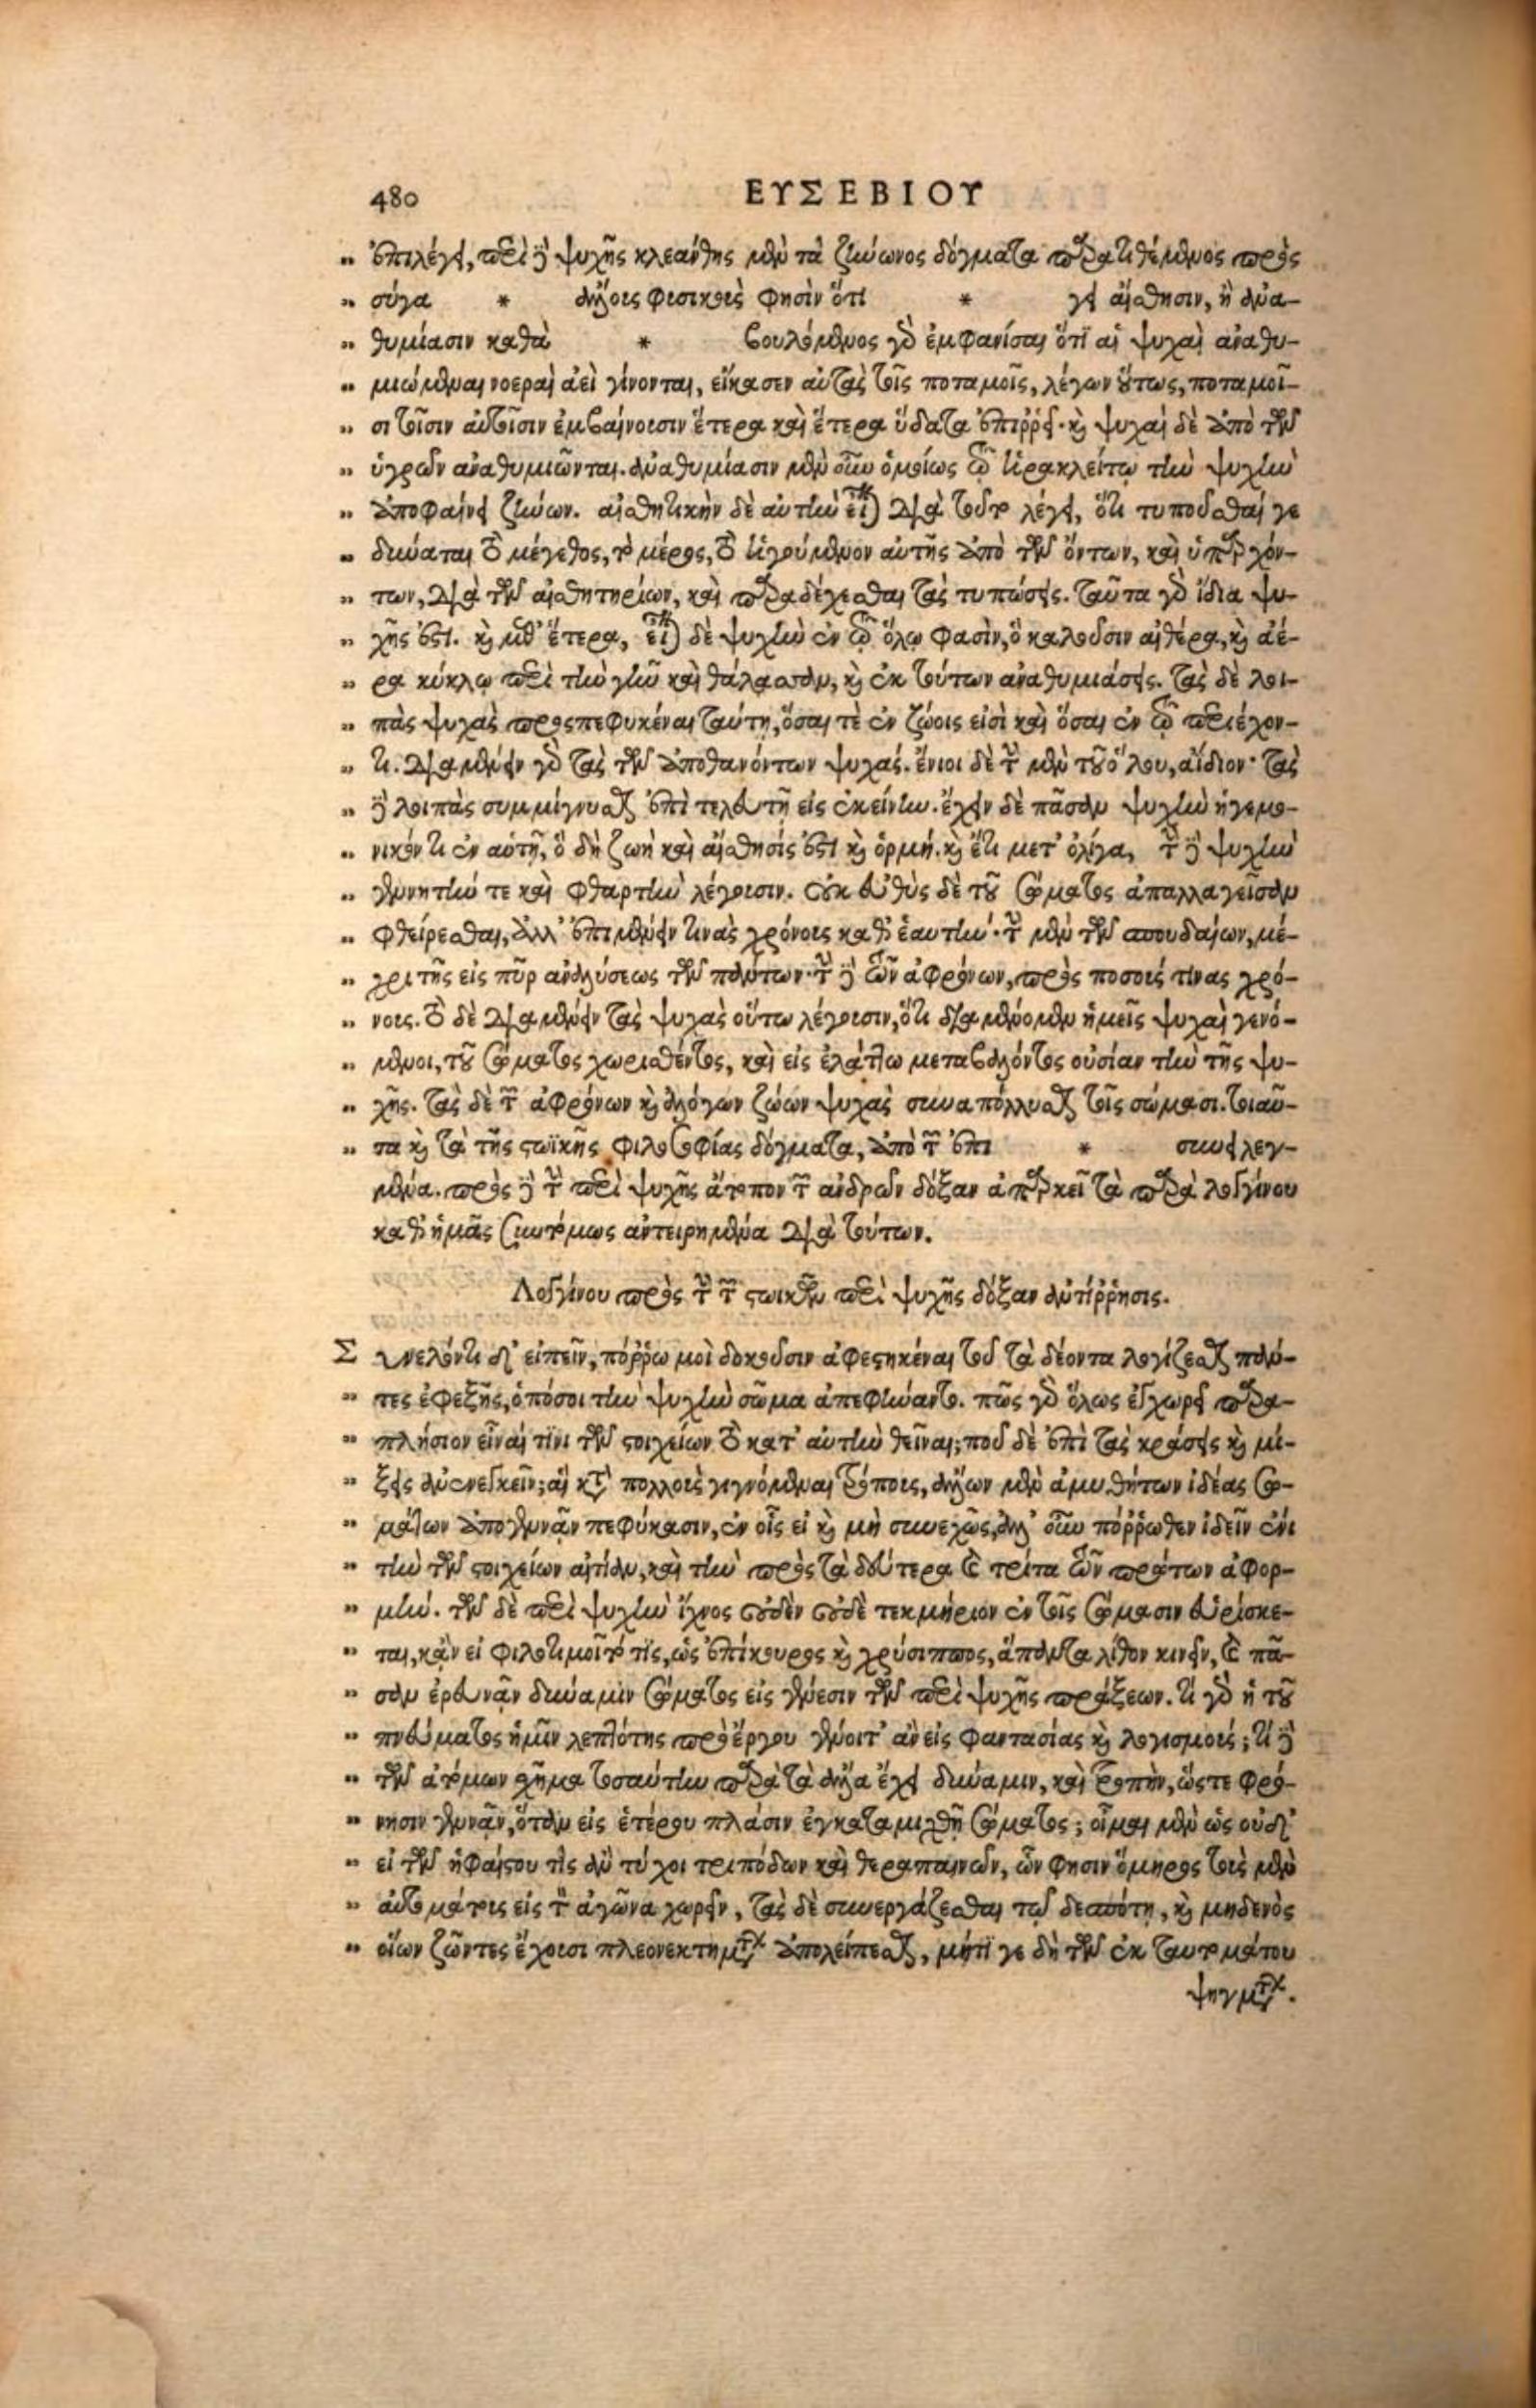 480 ΕΥΣΕΒΙΟΥ
„ ἐπιλέγει, περὶ δὲ ψυχῆς κλεάνθης μὲν τὰ ζήνωνος δόγματα παρατιθέμενος πρὸς
„ σύγα * ἄλλοις φισικοὺς φησὶν ὅτι * γει αἴσθησιν, ἢ ἀνα-
„ θυμίασιν καθὰ * βουλόμενος γὰρ ἐμφανίσαι ὅτι αἱ ψυχαὶ ἀναθυ-
„ μιώμεναι νοεραὶ ἀεὶ γίνονται, εἴκασεν αὐτὰς τοῖς ποταμοῖς, λέγων οὕτως, ποταμοῖ-
„ σι τοῖσιν αὐτοῖσιν ἐμβαίνουσιν ἕτερα καὶ ἕτερα ὕδατα ἐπιρρεῖ. καὶ ψυχαὶ δὲ ἀπὸ τῶν
„ ὑγρῶν ἀναθυμιῶνται. ἀναθυμίασιν μὲν οὖν ὁμοίως τῷ ἡρακλείτῳ τὴν ψυχὴν
„ ἀποφαίνει ζήνων. αἰσθητικὴν δὲ αὐτὴν εἶναι διὰ τοῦτο λέγει, ὅτι τυποῦσθαί γε
„ δύναται τὸ μέγεθος, τὸ μέρος, τὸ ἡγούμενον αὐτῆς ἀπὸ τῶν ὄντων, καὶ ὑπαρχόν-
„ των, διὰ τῶν αἰσθητηρίων, καὶ παραδέχεσθαι τὰς τυπώσεις. ταῦτα γὰρ ἴδια ψυ-
„ χῆς ἐστι. καὶ μεθ' ἕτερα, εἶναι δὲ ψυχὴν ἐν τῷ ὅλῳ φασὶν, ὃ καλοῦσιν αἰθέρα, καὶ ἀέ-
„ ρα κύκλῳ περὶ τὴν γῆν καὶ θάλασσαν, καὶ ἐκ τούτων ἀναθυμιάσεις. τὰς δὲ λοι-
„ πὰς ψυχὰς προσπεφυκέναι ταύτῃ, ὅσαι τὲ ἐν ζώοις εἰσὶ καὶ ὅσαι ἐν τῷ περιέχον-
„ τι. διαμένειν γὰρ τὰς τῶν ἀποθανόντων ψυχάς. ἔνιοι δὲ τὴν μὲν τοῦ ὅλου, ἀΐδιον· τὰς
„ δὲ λοιπὰς συμμίγνυσθαι ἐπὶ τελευτῇ εἰς ἐκείνην. ἔχειν δὲ πᾶσαν ψυχὴν ἡγεμο-
„ νικόν τι ἐν αὑτῇ, ὃ δὴ ζωὴ καὶ αἴσθησίς ἐστι καὶ ὁρμή. καὶ ἔτι μετ' ὀλίγα, τὴν δὲ ψυχὴν
„ γενητήν τε καὶ φθαρτὴν λέγουσιν. οὐκ εὐθὺς δὲ τοῦ σώματος ἀπαλλαγεῖσαν
„ φθείρεσθαι, ἀλλ' ἐπιμένειν τινὰς χρόνους καθ' ἑαυτήν. τὴν μὲν τῶν σπουδαίων, μέ-
„ χρι τῆς εἰς πῦρ ἀναλύσεως τῶν πάντων. τὴν δὲ τῶν ἀφρόνων, πρὸς ποσούς τινας χρό-
„ νους. τὸ δὲ διαμένειν τὰς ψυχὰς οὕτω λέγουσιν, ὅτι διαμένομεν ἡμεῖς ψυχαὶ γενό-
„ μενοι, τοῦ σώματος χωρισθέντος, καὶ εἰς ἐλάττω μεταβαλόντος οὐσίαν τὴν τῆς ψυ-
„ χῆς. τὰς δὲ τῶν ἀφρόνων καὶ ἀλόγων ζώων ψυχὰς συναπόλλυσθαι τοῖς σώμασι. τοιαῦ-
„ τα καὶ τὰ τῆς στωϊκῆς φιλοσοφίας δόγματα, ἀπὸ τῶν ἐπι * συνειλεγ-
μένα. πρὸς δὲ τὴν περὶ ψυχῆς ἄτοπον τῶν ἀνδρῶν δόξαν ἀπαρκεῖ τὰ παρὰ λογγίνου
καθ' ἡμᾶς συντόμως ἀντειρημένα διὰ τούτων.
Λογγίνου πρὸς τὴν τῶν στωικῶν περὶ ψυχῆς δόξαν ἀντίρρησις.
Συνελόντι δ' εἰπεῖν, πόρρω μοι δοκοῦσιν ἀφεστηκέναι τοῦ τὰ δέοντα λογίζεσθαι πάν-
„ τες ἐφεξῆς, ὁπόσοι τὴν ψυχὴν σῶμα ἀπεφήναντο. πῶς γὰρ ὅλως ἐγχωρεῖ παρα-
„ πλήσιον εἶναί τινι τῶν στοιχείων τὸ κατ' αὐτὴν θεῖναι; ποῦ δὲ ἐπὶ τὰς κράσεις καὶ μί-
„ ξεις ἀνενεγκεῖν; αἳ κατὰ πολλοὺς γιγνόμεναι τρόπους, ἄλλων μὲν ἀμυθήτων ἰδέας σω-
„ μάτων ἀπογεννᾶν πεφύκασιν, ἐν οἷς εἰ καὶ μὴ συνεχῶς, ἀλλ' οὖν πόρρωθεν ἰδεῖν ἔνι
„ τὴν τῶν στοιχείων αἰτίαν, καὶ τὴν πρὸς τὰ δεύτερα καὶ τρίτα τῶν πρώτων ἀφορ-
„ μήν. τῶν δὲ περὶ ψυχὴν ἴχνος οὐδὲν οὐδὲ τεκμήριον ἐν τοῖς σώμασιν εὑρίσκε-
„ ται, κἂν εἰ φιλοτιμοῖτό τις, ὡς ἐπίκουρος καὶ χρύσιππος, ἅπαντα λίθον κινεῖν, καὶ πᾶ-
„ σαν ἐρευνᾶν δύναμιν σώματος εἰς γένεσιν τῶν περὶ ψυχῆς πράξεων. τί γὰρ ἡ τοῦ
„ πνεύματος ἡμῖν λεπτότης πρὸ ἔργου γένοιτ' ἂν εἰς φαντασίας καὶ λογισμούς; τί δὲ
„ τῶν ἀτόμων σχῆμα τοσαύτην παρὰ τὰ ἄλλα ἔχει δύναμιν, καὶ τροπὴν, ὥστε φρό-
„ νησιν γεννᾶν, ὅταν εἰς ἑτέρου πλάσιν ἐγκαταμιχθῇ σώματος; οἶμαι μὲν ὡς οὐδ'
„ εἰ τῶν ἡφαίστου τις ἂν τύχοι τριπόδων καὶ θεραπαινῶν, ὧν φησιν ὅμηρος τοὺς μὲν
„ αὐτομάτους εἰς τὸν ἀγῶνα χωρεῖν, τὰς δὲ συνεργάζεσθαι τῷ δεσπότῃ, καὶ μηδενὸς
„ οἵων ζῶντες ἔχουσι πλεονεκτημάτων ἀπολείπεσθαι, μήτι γε δὴ τῶν ἐκ ταυτομάτου
ψηγμάτων.